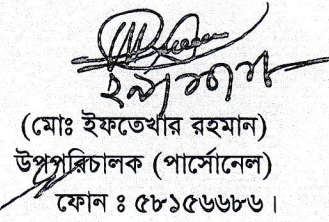 (মোঃ ইফতেখার রহমান)
উপপরিচালক (পার্সোনেল)
ফোন ঃ ৫৮১৫৬৬৮৬।